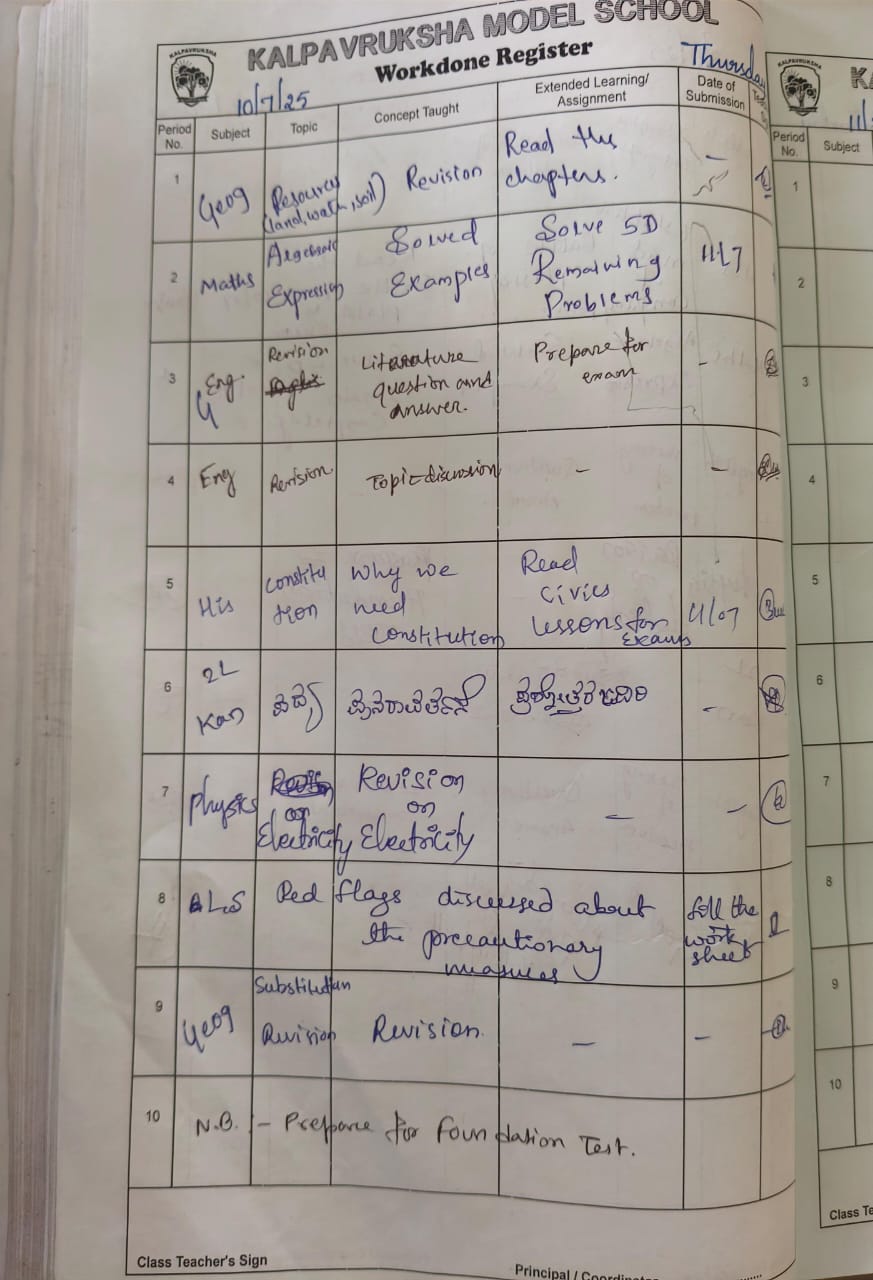 KALPAVRUKSHA MODEL SCHOOL
KALPAVRUKSHA
Workdone Register
10/7/25
Thursday
Period No. Subject Topic Concept Taught Extended Learning/ Assignment Date of Submission
1 Geog Resources (land, water, soil) Revision Read the chapters. –
2 Maths Algebraic Expression Solved Examples Solve 5D Remaining Problems 11/7
3 Eng. Revision Literature question and answer. Prepare for exam -
4 Eng Revision Topic discussion – –
5 His Constitution Why we need constitution Read civics lessons for exams 11/07
6 2L Kan ಪದ್ಯ ಪುನರಾವರ್ತನೆ –
7 Physics on Electricity Revision on Electricity – –
8 LS Red flags discussed about the precautionary measures fill the work sheet
9 Geog Substitution Revision Revision. – –
10 N.B. :- Prepare for Foundation Test.
Class Teacher's Sign
Principal /
KALPAVRUKSHA
11/
Period No. Subject
1
2
3
4
5
6
7
8
9
10
Class Te